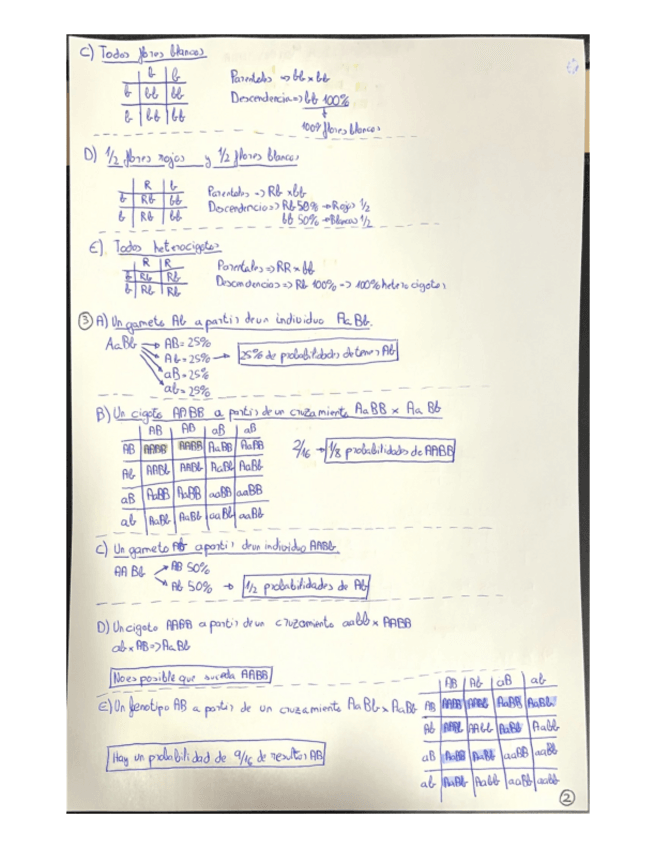 C) Todos flores blancas
b b
b bb bb
b bb bb
Parentales => bb x bb
Descendencia => bb 100%
100% flores blancas
D) 1/2 flores rojas y 1/2 flores blancas
R b
b Rb bb
b Rb bb
Parentales => Rb x bb
Descendencia => Rb 50% → Rojas 1/2
bb 50% → Blancas 1/2
E) Todos heterocigotos
R R
b Rb Rb
b Rb Rb
Parentales => RR x bb
Descendencias => Rb 100% -> 100% heterocigotos
③ A) Un gameto Ab a partir de un individuo AaBb.
AaBb → AB = 25%
Ab = 25% → 25% de probabilidades de tener Ab
aB = 25%
ab = 25%
B) Un cigoto AABB a partir de un cruzamiento AaBB x AaBb
AB AB aB aB
AB AABB AABB AaBB AaBB
Ab AABb AABb AaBb AaBb
aB AaBB AaBB aaBB aaBB
ab AaBb AaBb aaBb aaBb
2/16 → 1/8 probabilidades de AABB
C) Un gameto Ab a partir de un individuo AABb.
AABb → AB 50%
Ab 50% → 1/2 probabilidades de Ab
D) Un cigoto AABB a partir de un cruzamiento aabb x AABB
ab x AB => AaBb
No es posible que suceda AABB
E) Un fenotipo AB a partir de un cruzamiento AaBb x AaBb
AB Ab aB ab
AB AABB AABb AaBB AaBb
Ab AABb AAbb AaBb Aabb
aB AaBB AaBb aaBB aaBb
ab AaBb Aabb aaBb aabb
Hay un probabilidad de 9/16 de resultar AB
②